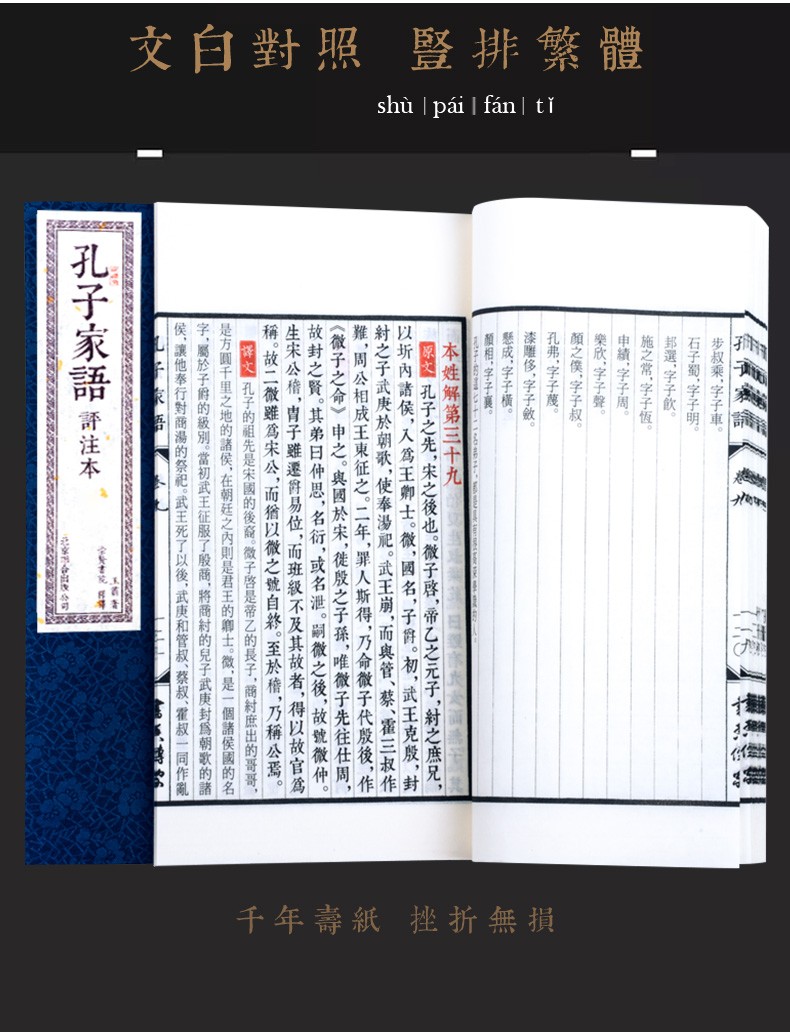 文白對照 豎排繁體
shù | pái ‖ fán | tǐ
步叔乘，字子車。
石子蜀，字子明。
邽選，字子飲。
施之常，字子恆。
申績，字子周。
樂欣，字子聲。
顏之僕，字子叔。
孔弗，字子蔑。
漆雕侈，字子斂。
懸成，字子橫。
顏相，字子襄。
本姓解第三十九
原文 孔子之先，宋之後也。微子啓，帝乙之元子，紂之庶兄，
以圻內諸侯，入爲王卿士。微，國名，子爵。初，武王克殷，封
紂之子武庚於朝歌，使奉湯祀。武王崩，而與管、蔡、霍三叔作
難，周公相成王東征之。二年，罪人斯得，乃命微子代殷後，作
《微子之命》申之。與國於宋，徙殷之子孫，唯微子先往仕周，
故封之賢。其弟曰仲思，名衍，或名泄。嗣微之後，故號微仲。
生宋公稽，胄子雖遷爵易位，而班級不及其故者，得以故官爲
稱。故二微雖爲宋公，而猶以微之號自終。至於稽，乃稱公焉。
譯文 孔子的祖先是宋國的後裔。微子啓是帝乙的長子，商紂庶出的哥哥，
是方圓千里之地的諸侯，在朝廷之內則是君王的卿士。微，是一個諸侯國的名
字，屬於子爵的級別。當初武王征服了殷商，將商紂的兒子武庚封爲朝歌的諸
侯，讓他奉行對商湯的祭祀。武王死了以後，武庚和管叔、蔡叔、霍叔一同作亂
孔子家語
卷九
孔子家語
卷九
孔子家語
評注本
千年壽紙 挫折無損